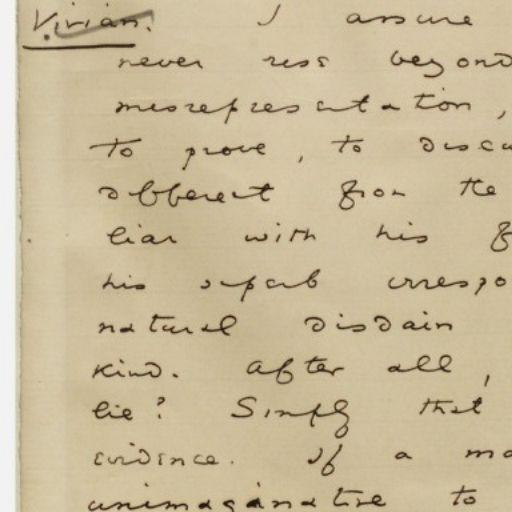 Vivian. I assure
never rise beyond
misrepresentation,
to prove, to discu
different from the
liar with his f
his superb irrespo
natural disdain
kind. After all,
lie? Simply that
evidence. If a ma
unimaginative to